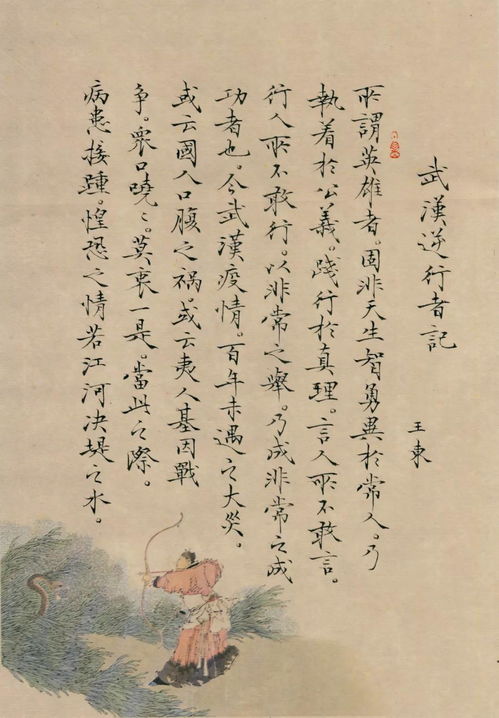 武漢逆行者記
王東
所謂英雄者。固非天生智勇異於常人。乃
執着於公義。踐行於真理。言人所不敢言。
行人所不敢行。以非常之舉。乃成非常之成
功者也。今武漢疫情。百年未遇之大災。
或云國人口腹之祸或云夷人基因戰
争。衆口嘵〻。莫衷一是。當此之際。
病患接踵。惶恐之情若江河决堤之水。